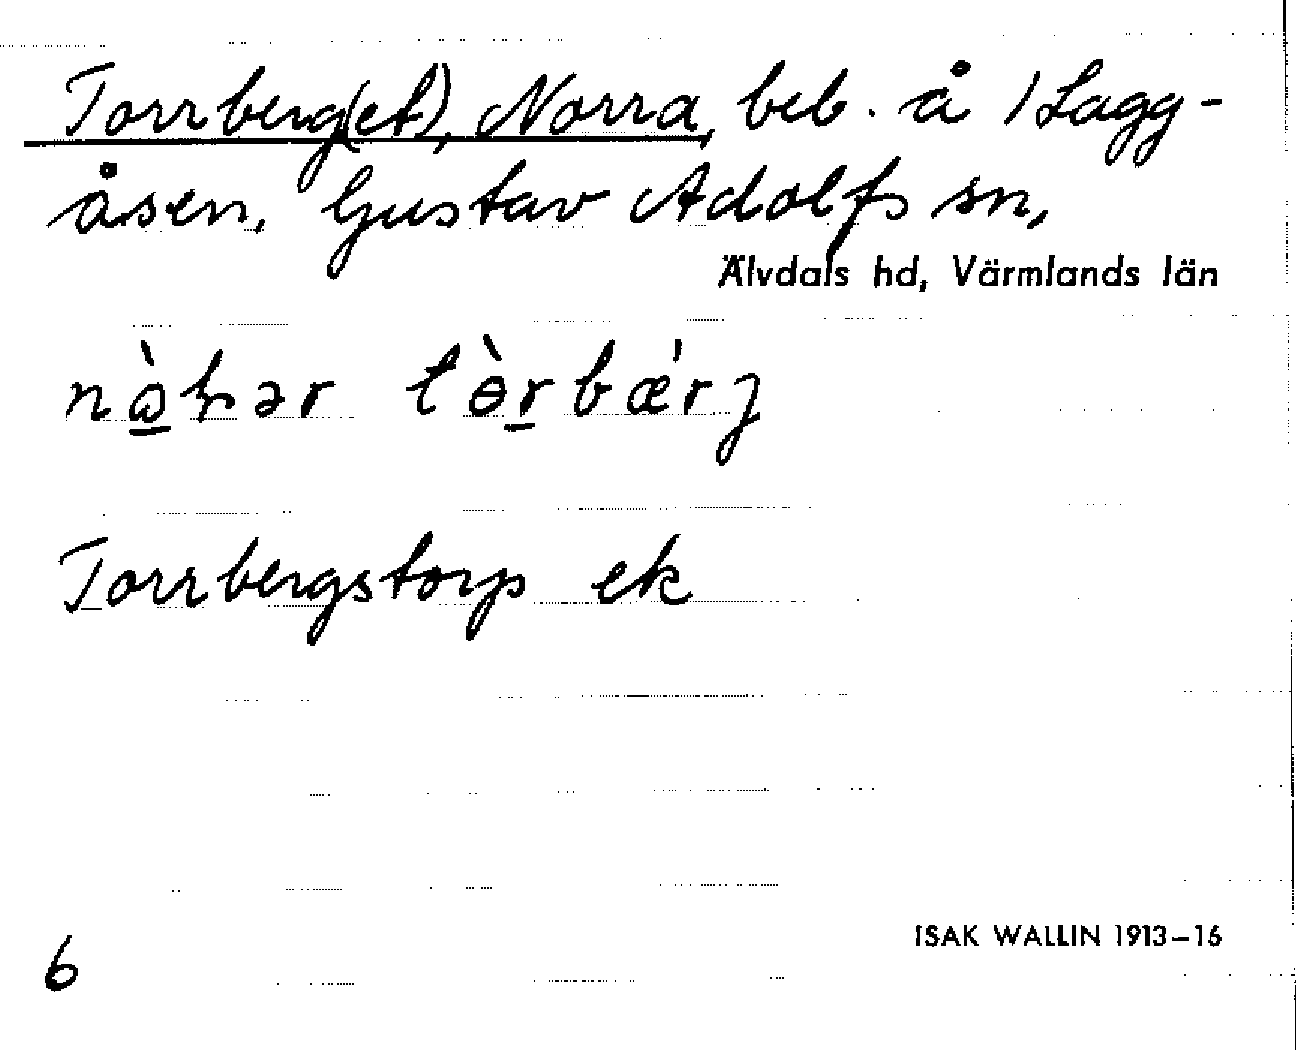 Torrberg(et), Norra, beb. å 1 Lagg-
åsen, Gustav Adolfs sn,
Älvdals hd, Värmlands län
Torrbergstorp ek
ISAK WALLIN 1913–16
6